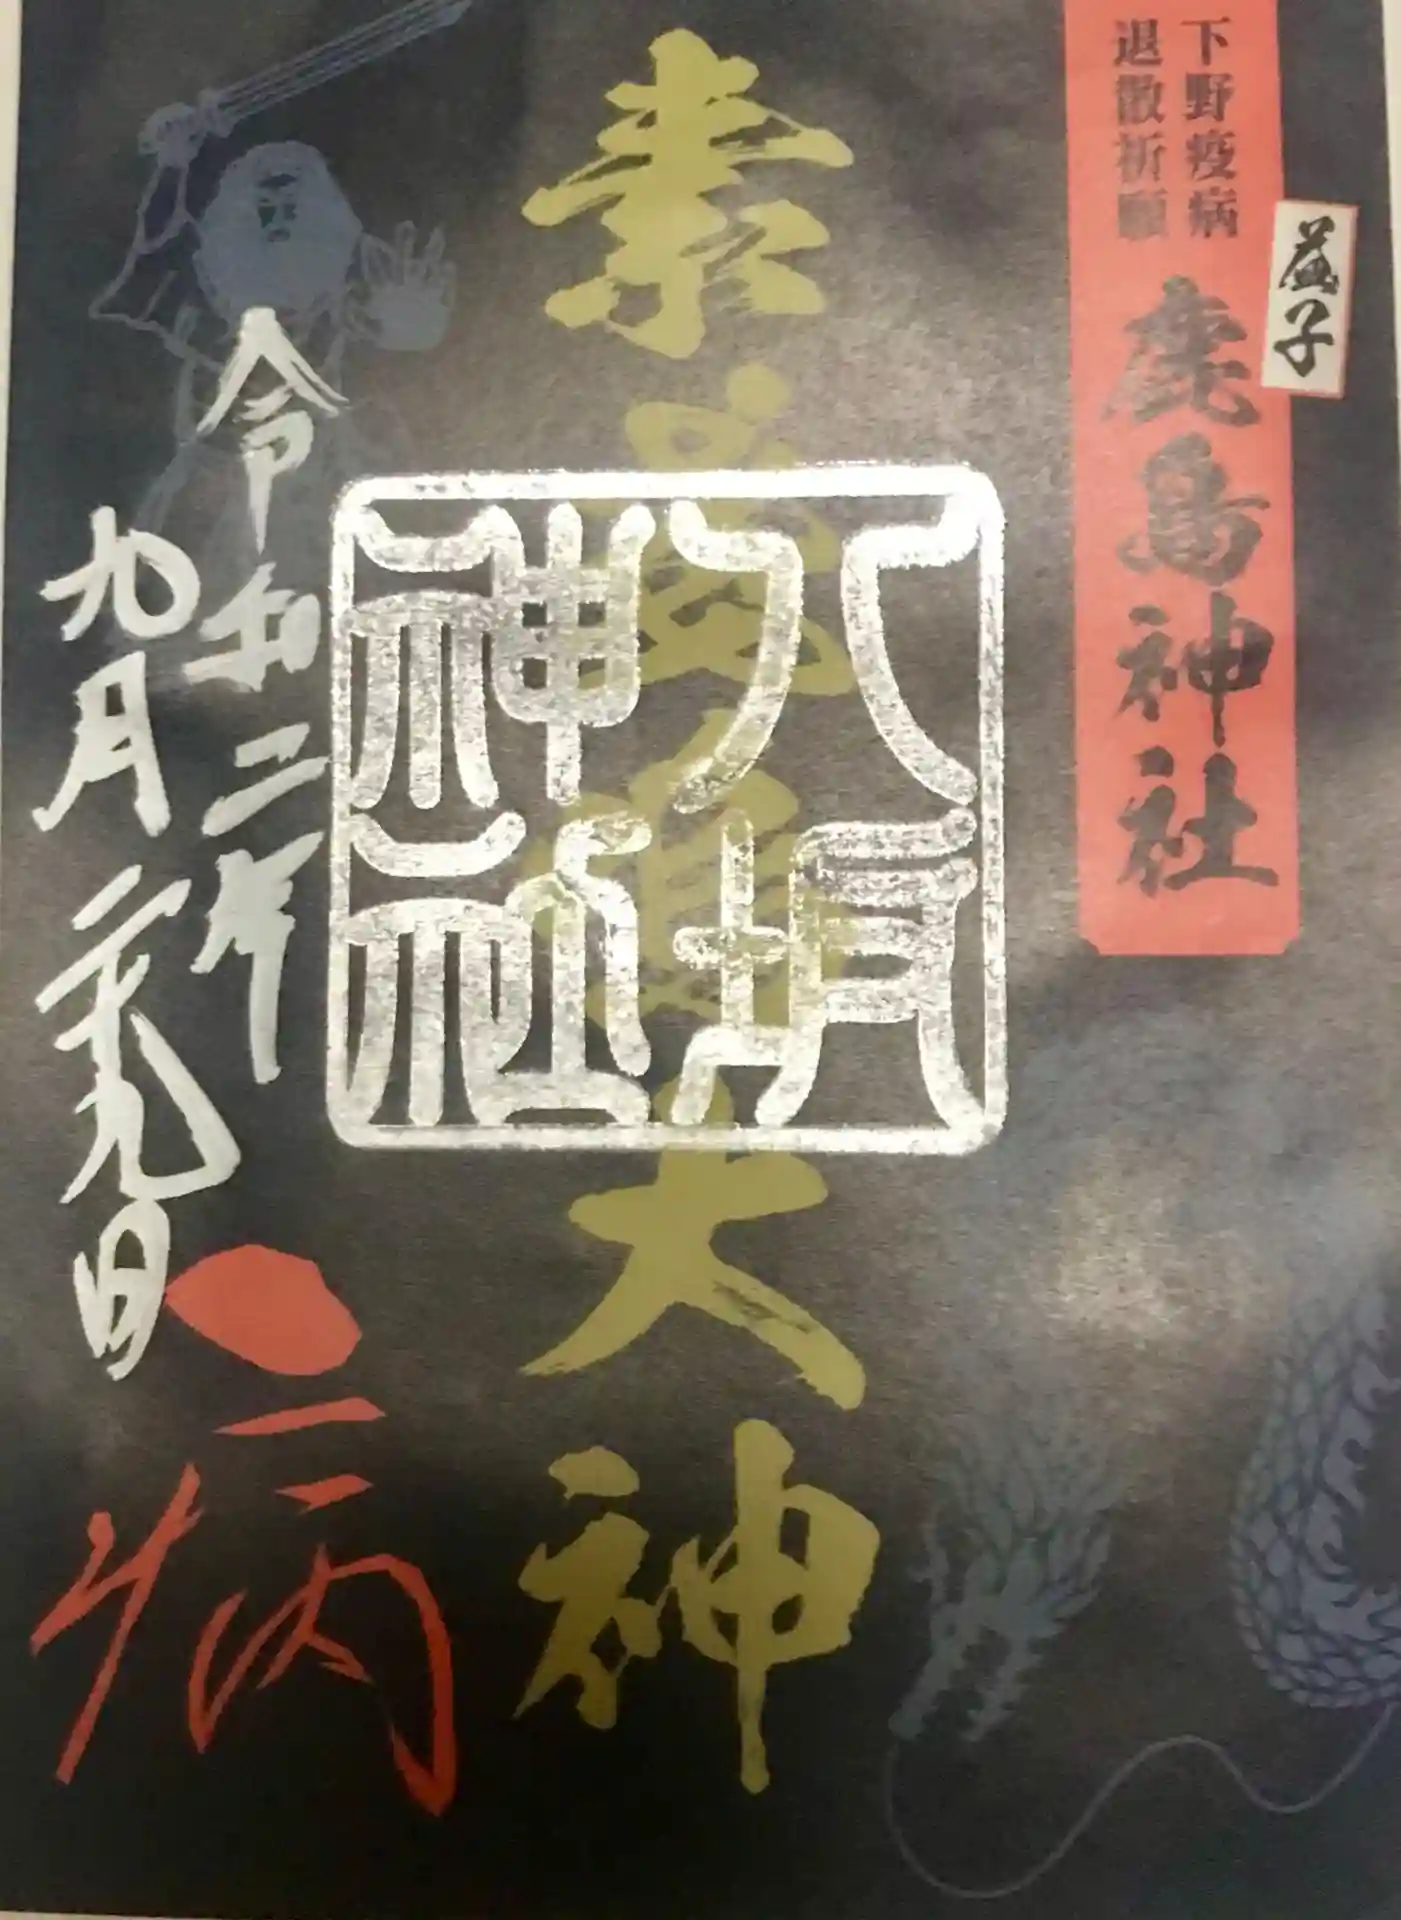 下野疫病
退散祈願
鹿島神社
益子
素大神
八坂
神社
令和二年
九月二十九日
病